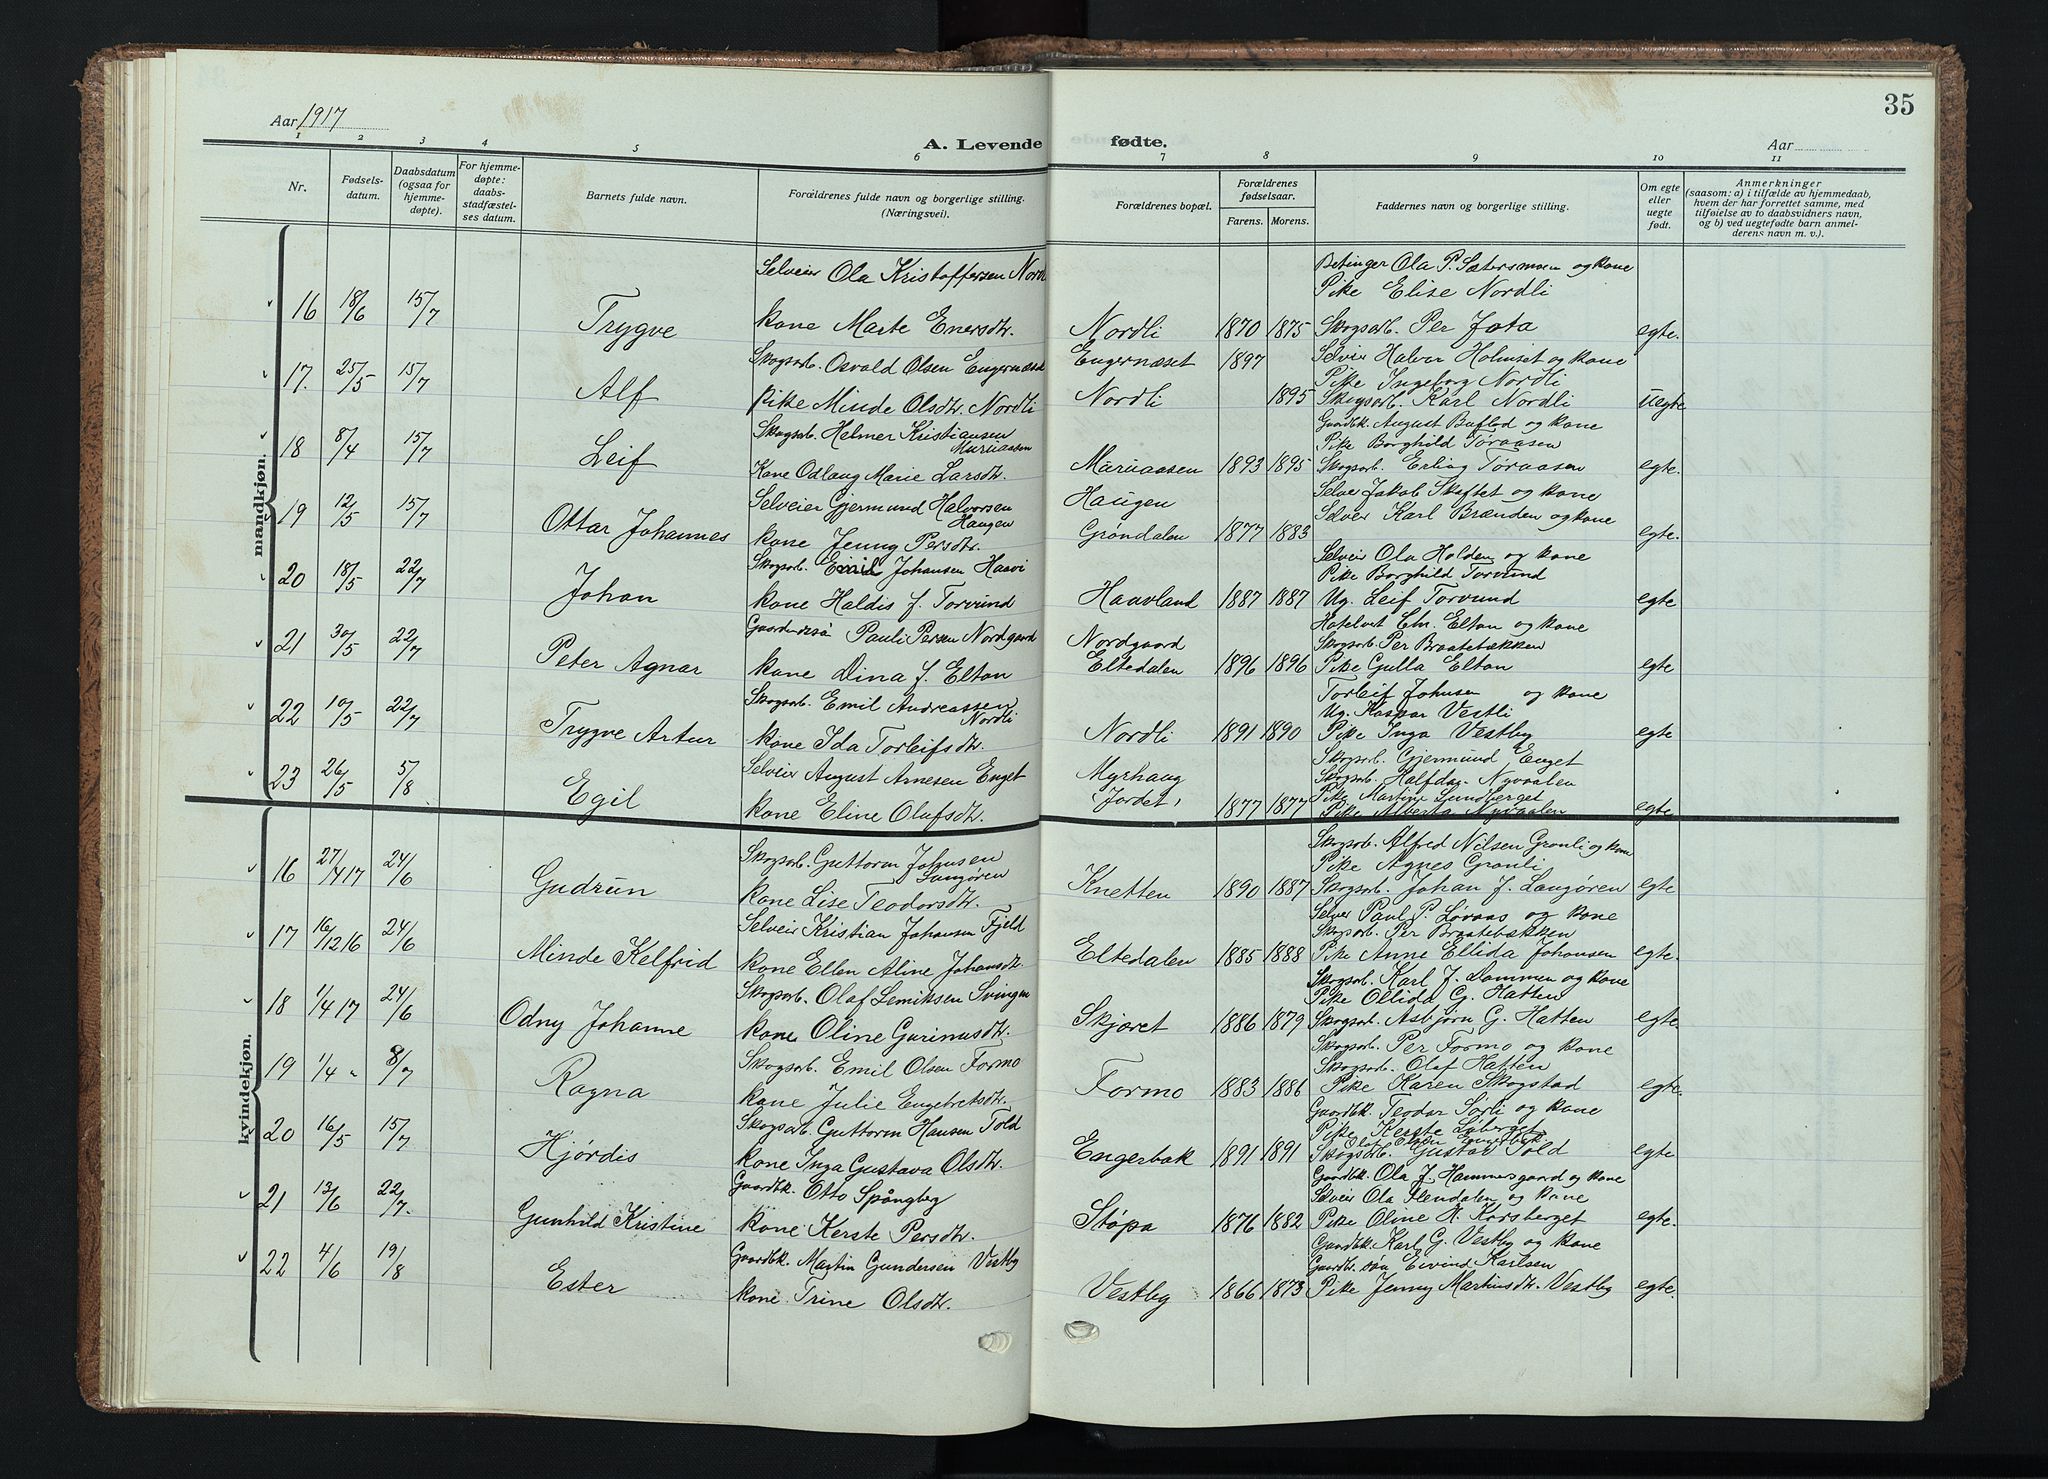 35
Aar 1917
A. Levende fødte.
Aar
1 2 3 4 5 6 7 8 9 10 11
Nr.
Fødsels-
datum.
Daabsdatum
(ogsaa for
hjemme-
døpte).
For hjemme-
døpte:
daabs-
stadfæstel-
ses datum.
Barnets fulde navn.
Forældrenes fulde navn og borgerlige stilling.
(Næringsvei).
Forældrenes bopæl.
Forældrenes
fødselsaar.
Farens. Morens.
Faddernes navn og borgerlige stilling.
Om egte
eller
uegte
født.
Anmerkninger
(saasom: a) i tilfælde av hjemmedaab,
hvem der har forrettet samme, med
tilføielse av to daabsvidners navn,
og b) ved uegtefødte barn anmel-
derens navn m. v.).
mandkjøn.
Selveier Ola Kristoffersen
Ola P. Sætersmoen og kone
Pike Elise Nordli
16 18/6 15/7 Trygve kone Marte Enersdtr. Nordli 1870 1875 Skogsarb. Per Jota egte.
Skogsarb. Osvald Olsen Engernæset Engernæset 1897 Selveier Halvor Holmset og kone
Pike Ingeborg Nordli
17. 25/5 15/7 Alf pike Minde Olsdtr. Nordli Nordli 1895 Skogsarb. Karl Nordli uegte
Skogsarb. Helmer Kristiansen
Gaardbk. August Buflod og kone
Pike Borghild Toraasen
18 8/4 15/7 Leif Kone Odlaug Marie Larsdtr. 1893 1895 Skogsarb. Erling Toraasen egte.
Selveier Gjermund Halvorsen Haugen Haugen Selveier Jakob Skaftet og kone
Selveier Karl Brænden og kone
19 12/5 15/7 Ottar Johannes kone Jenny Persdtr. Grøndalen 1877 1883 egte.
Skogsarb. Emil Johansen Haavl
Selveier Ola Holden og kone
Pike Borghild Torvund
20 18/5 22/7 Johan kone Haldis f. Torvund Haavland 1887 1887 Ug. Leif Torvund egte
Pauli Persen Nordgaard Nordgaard Hotelvert Chr. Elton og kone
Skogsarb. Per Braatebækken
21 30/5 22/7 Peter Agnar kone Dina f. Elton Eltedalen 1896 1896 Pike Gulla Elton egte
Skogsarb. Emil Andreassen Nordli
Torleif Johnsen og kone
Ug. Kaspar Vestli
22 10/5 22/7 Trygve Artur kone Ida Torleifsdtr. Nordli 1891 1890 Pike Inga Vestby egte
Selveier August Arnesen Enget Myrhaug Skogsarb. Gjermund Enget
Skogsarb. Halfdan Nyvaalen
Pike Martine Lundberget
23 26/5 5/8 Egil kone Eline Olafsdtr. (Jordet) 1877 1877 Pike Alvesta Nyvaalen egte
kvindekjøn.
Skogsarb. Guttorm Johnsen Langøren
Skogsarb. Alfred Nilsen Grønli og kone
Pike Agnes Grønli
16 27/4 17 24/6 Gudrun kone Lise Teodorsdtr. Knetten 1890 1887 Skogsarb. Johan J. Langøren egte
Selveier Kristian Johansen Fjeld
Selveier Paul P. Løvaas og kone
Skogsarb. Per Braatebækken
17 16/12 16 24/6 Minde Kelfrid kone Ellen Aline Johansdtr. Eltedalen 1885 1888 Pike Anne Ellida Johansen egte.
Skogsarb. Olaf Lemiksen Svingen
Skogsarb. Karl J. Dammen og kone
Pike Ollida G. Hatten
18 1/4 17 24/6 Odny Johanne kone Oline Gurinusdtr. Skjæret 1886 1879 Skogsarb. Asbjørn G. Hatten egte
Skogsarb. Emil Olsen Formo
Skogsarb. Per Formo og kone
Skogsarb. Olaf Hatten
19 1/4 " 8/7 Ragna kone Julie Engebretsdtr. Formo 1883 1886 Pike Karen Skogstad egte.
Skogsarb. Guttorm Hansen Told
Gaardbk. Teodor Sørli og kone
Pike Kerste Løberget
Olaf Olsen Engerbak
20 16/5 15/7 Hjørdis kone Inga Gustava Olsdtr. Engerbak 1891 1891 Skogsarb. Gustav Told egte
Gaardbk. Otto Spångberg
Gaardbk. Ola J. Hammersgaard og kone
Selveier Ola Flendalen og kone
21 13/6 22/7. Gunhild Kristine kone Kerste Persdtr. Støpa 1876 1882 Pike Oline H. Korsberget egte.
Gaardbk. Martin Gundersen Vestby
Gaardbk. Karl G. Vestby og kone
Gaardbr. søn Eivind Karlsen
22 4/6 19/8 Ester kone Trine Olsdtr. Vestby 1866 1873 Pike Jenny Martinsdtr. Vestby egte.